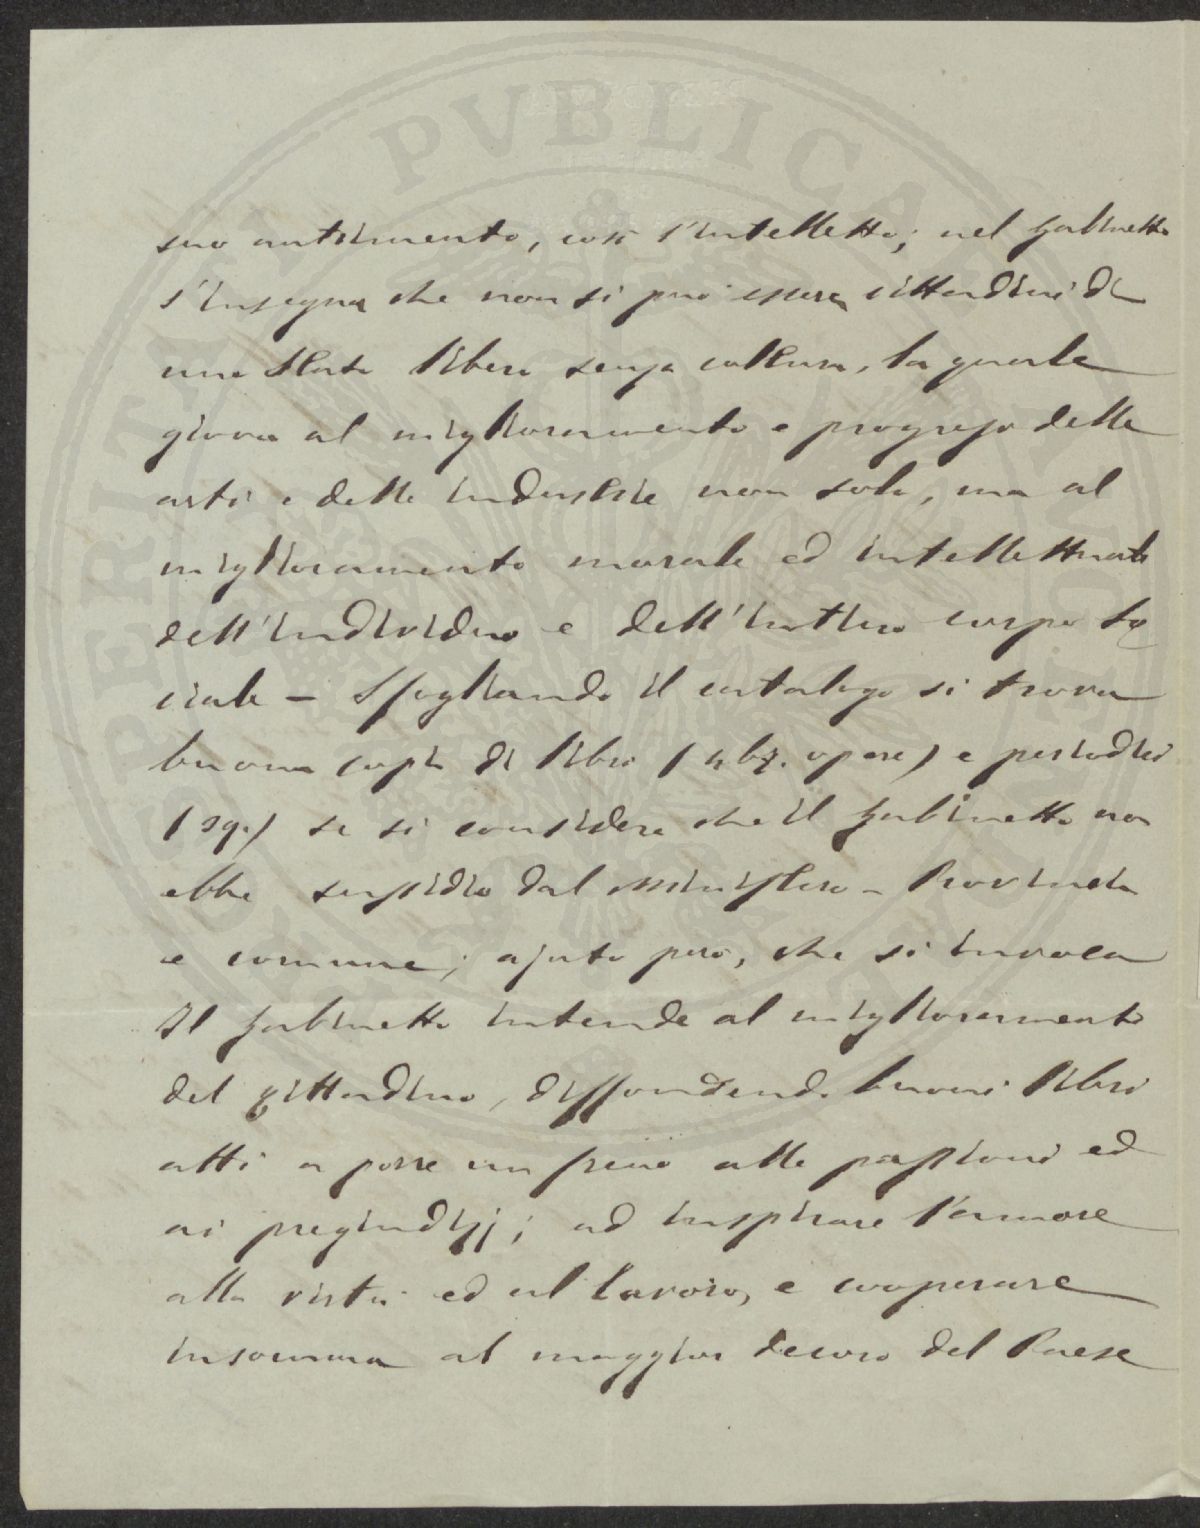 suo nutrimento, così l'intelletto; nel gabinetto
s'insegna che non si può essere cittadini di
uno Stato libero senza coltura, la quale
giova al miglioramento e progresso delle
arti e delle industrie non solo, ma al
miglioramento morale ed intellettuale
dell'individuo e dell'intiero corpo so
ciale – Sfogliando il catalogo si trova
buona copia di libri ( opere) e periodici
(29.) se si considera che il gabinetto non
ebbe sussidio dal Ministero – Provincia
e comune; ajuto però, che si invoca
Il gabinetto intende al miglioramento
del cittadino, diffondendo buoni libri
atti a porre un freno alle passioni ed
ai pregiudizj; ad inspirare l'amore
alla virtù ed al lavoro, e cooperare
insomma al maggior decoro del Paese
PVBLICAE